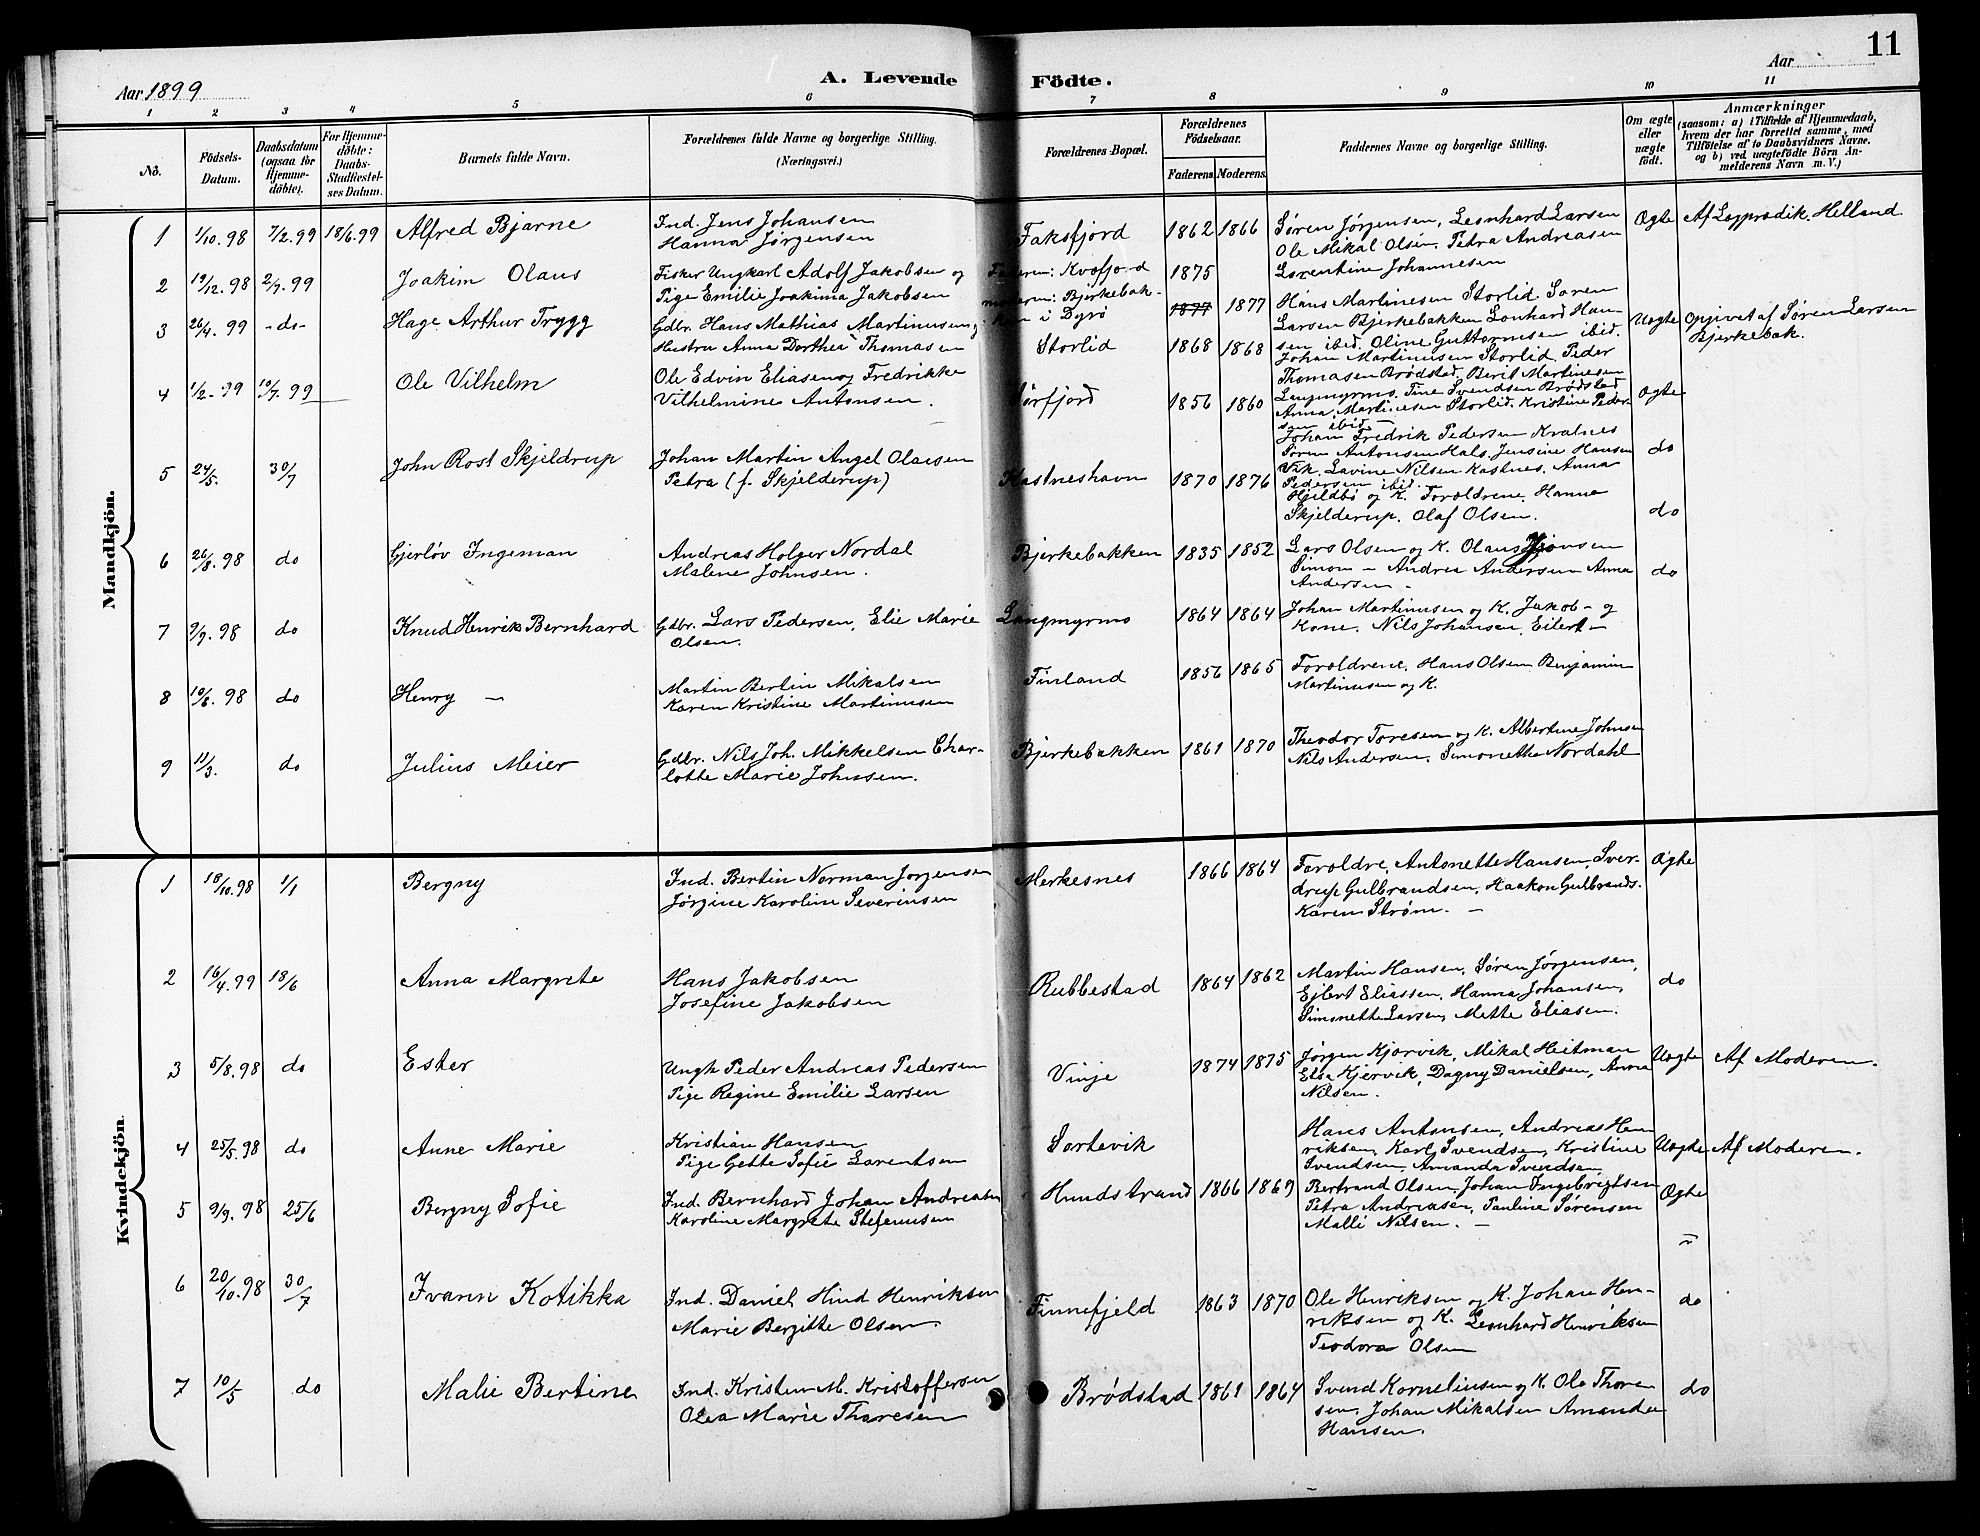 11
Aar 1899
A. Levende Födte.
Aar
1 2 3 4 5 6 7 8 9 10 11
No.
Födsels-Datum.
Daabsdatum (ogsaa for Hjemmedöbte).
For Hjemmedöbte: Daabs-Stadfæstelses Datum.
Barnets fulde Navn.
Forældrenes fulde Navne og borgerlige Stilling. (Næringsvei.)
Forældrenes Bopæl.
Forældrenes Födselsaar.
Faderens. Moderens.
Faddernes Navne og borgerlige Stilling.
Om ægte eller uægte födt.
Anmærkninger (saasom: a) i Tilfælde af Hjemmedaab, hvem der har forrettet samme, med Tilföielse af to Daabsvidners Navne, og b) ved uægtefödte Börn Anmelderens Navn m. V.)
Mandkjön.
1 1/10.98 7/2.99 18/6.99 Alfred Bjarne Ind. Jens Johansen
Hanna Jørgensen
Faksfjord 1862 1866 Søren Jørgensen, Leonhard Larsen
Ole Mikal Olsen, Petra Andreasen
Lorentine Johannesen
Ægte Af Lægprædik. Helland.
2 19/12.98 2/7.99 Joakim Olaus Fisker Ungkarl Adolf Jakobsen og
Pige Emilie Joakima Jakobsen
Faderen: Kvæfjord 1875
moderen: Bjerkebak-
ken i Dyrø 1877 1877
Hans Martinesen Storlid Søren
Larsen Bjerkebakken Lonhard Han-
sen ibid. Oline Guttormsen ibid.
Uægte Opgivet af Søren Larsen
Bjerkebak.
3 26/4.99 -do- Hage Arthur Trygg Gdbr. Hans Mathias Martinusen og
Hustru Anna Dorthea Thomasen
Storlid 1868 1868
Johan Martinusen Storlid Peder
Thomasen Brødstad, Berit Martinesen
Langmyrmo. Tine Svendsen Brødstad
Anna Martinesen Storlid. Kristine Peder-
sen ibid. -
Ægte
4 1/2-99 19/7.99 Ole Vilhelm Ole Edvin Eliasen og Fredrikke
Vilhelmine Antonsen.
Sørfjord 1856 1860
Johan Fredrik Pedersen Kvalnes
Søren Antonsen Hals. Jensine Hansen
Vik. Lavine Nilsen Kastnes, Anna
Pedersen ibid. -
do
5 24/5. 30/7 John Rost Skjeldrup Johan Martin Angel Olaisen
Petra (f. Skjelderup)
Kastneshavn 1870 1876
Hjeldbö og K. Foræeldrene, Hanna
Skjelderup. Olaf Olsen.
do
6 26/8.98 do Gjerløv Ingeman Andreas Holger Nordal
Malene Johnsen.
Bjerkebakken 1835 1852 Lars Olsen og K. Olaus Jonsen
Simon - Andrea Andersen Anna
Andersen -
do
7 9/9.98 do Knud Henrik Bernhard Gdbr. Lars Pedersen, Elie Marie
Olsen.
Langmyrmo 1864 1864 Johan Martinusen og K. Jakob - og
Kone. Nils Johansen, Eilert -
8 10/6.98 do Henry - Martin Bertin Mikalsen
Karen Kristine Martinusen
Finland 1856 1865 Forældrene, Hans Olsen Benjamin
Martinusen og K.
9 11/3. do Julius Meier Gdbr. Nils Joh. Mikkelsen Char-
lotte Marie Johnsen.
Bjerkebakken 1861 1870 Theodor Toresen og K. Albertine Johnsen
Nils Andersen, Simonetha Nordahl
Kvindekjön
1 18/10.98 1/1 Bergny Ind. Bertin Norman Jørgensen
Jørgine Karoline Severinsen
Merkesnes 1866 1864 Forældre, Antonette Hansen, Sver-
drup Gulbrandsen, Haakon Gulbrands.
Karen Strøm. -
Ægte
2 16/4.99 18/6 Anna Margrete Hans Jakobsen
Josefine Jakobsen
Rubbestad 1864 1862 Martin Hansen, Søren Jørgensen,
Ejlert Eliassen, Hanna Johansen,
Simonette Larsen, Mette Eliasen.
do
3 5/8.98 do Ester Ungk Peder Andreas Pedersen
Pige Regine Emilie Larsen
Vinje 1874 1875 Jørgen Kjørvik, Mikal Heitman
Elsa Kjervik, Dagny Danielsen, Anna
Nilsen.
Uægte Af Moderen.
4 25/5.98 do Anne Marie Kristian Hansen
Pige Gette Sofie Larentsen
Sortevik
Hans Antonsen, Andreas Hen
riksen, Karl Svendsen, Kristine
Svendsen, Amanda Svendsen.
Uægte Af Moderen.
5 9/9.98 25/6 Bergny Sofie Ind. Bernhard Johan Andreasen
Karoline Margrete Stefanusen
Hundstrand 1866 1869 Bertrand Olsen, Johan Ingebrigtsen
Petra Andreasen, Pauline Sørensen
Malli Nilsen. -
Ægte
6 20/10.98 30/7 Ivann Kotikka Ind. Daniel Hind Henriksen
Marie Bergitte Olsen.
Finnefjeld 1863 1870 Ole Henriksen og K. Johan Hen-
riksen og K. Leonhard Henriksen
Teodora Olsen
do
7 10/5 do Malie Bertine Ind. Kristen M. Kristoffersen
Olea Marie Thoresen
Brødstad 1861 1864 Svend Korneliusen og K. Ole Thore
sen. Johan Mikalsen Amanda
Hansen.
do